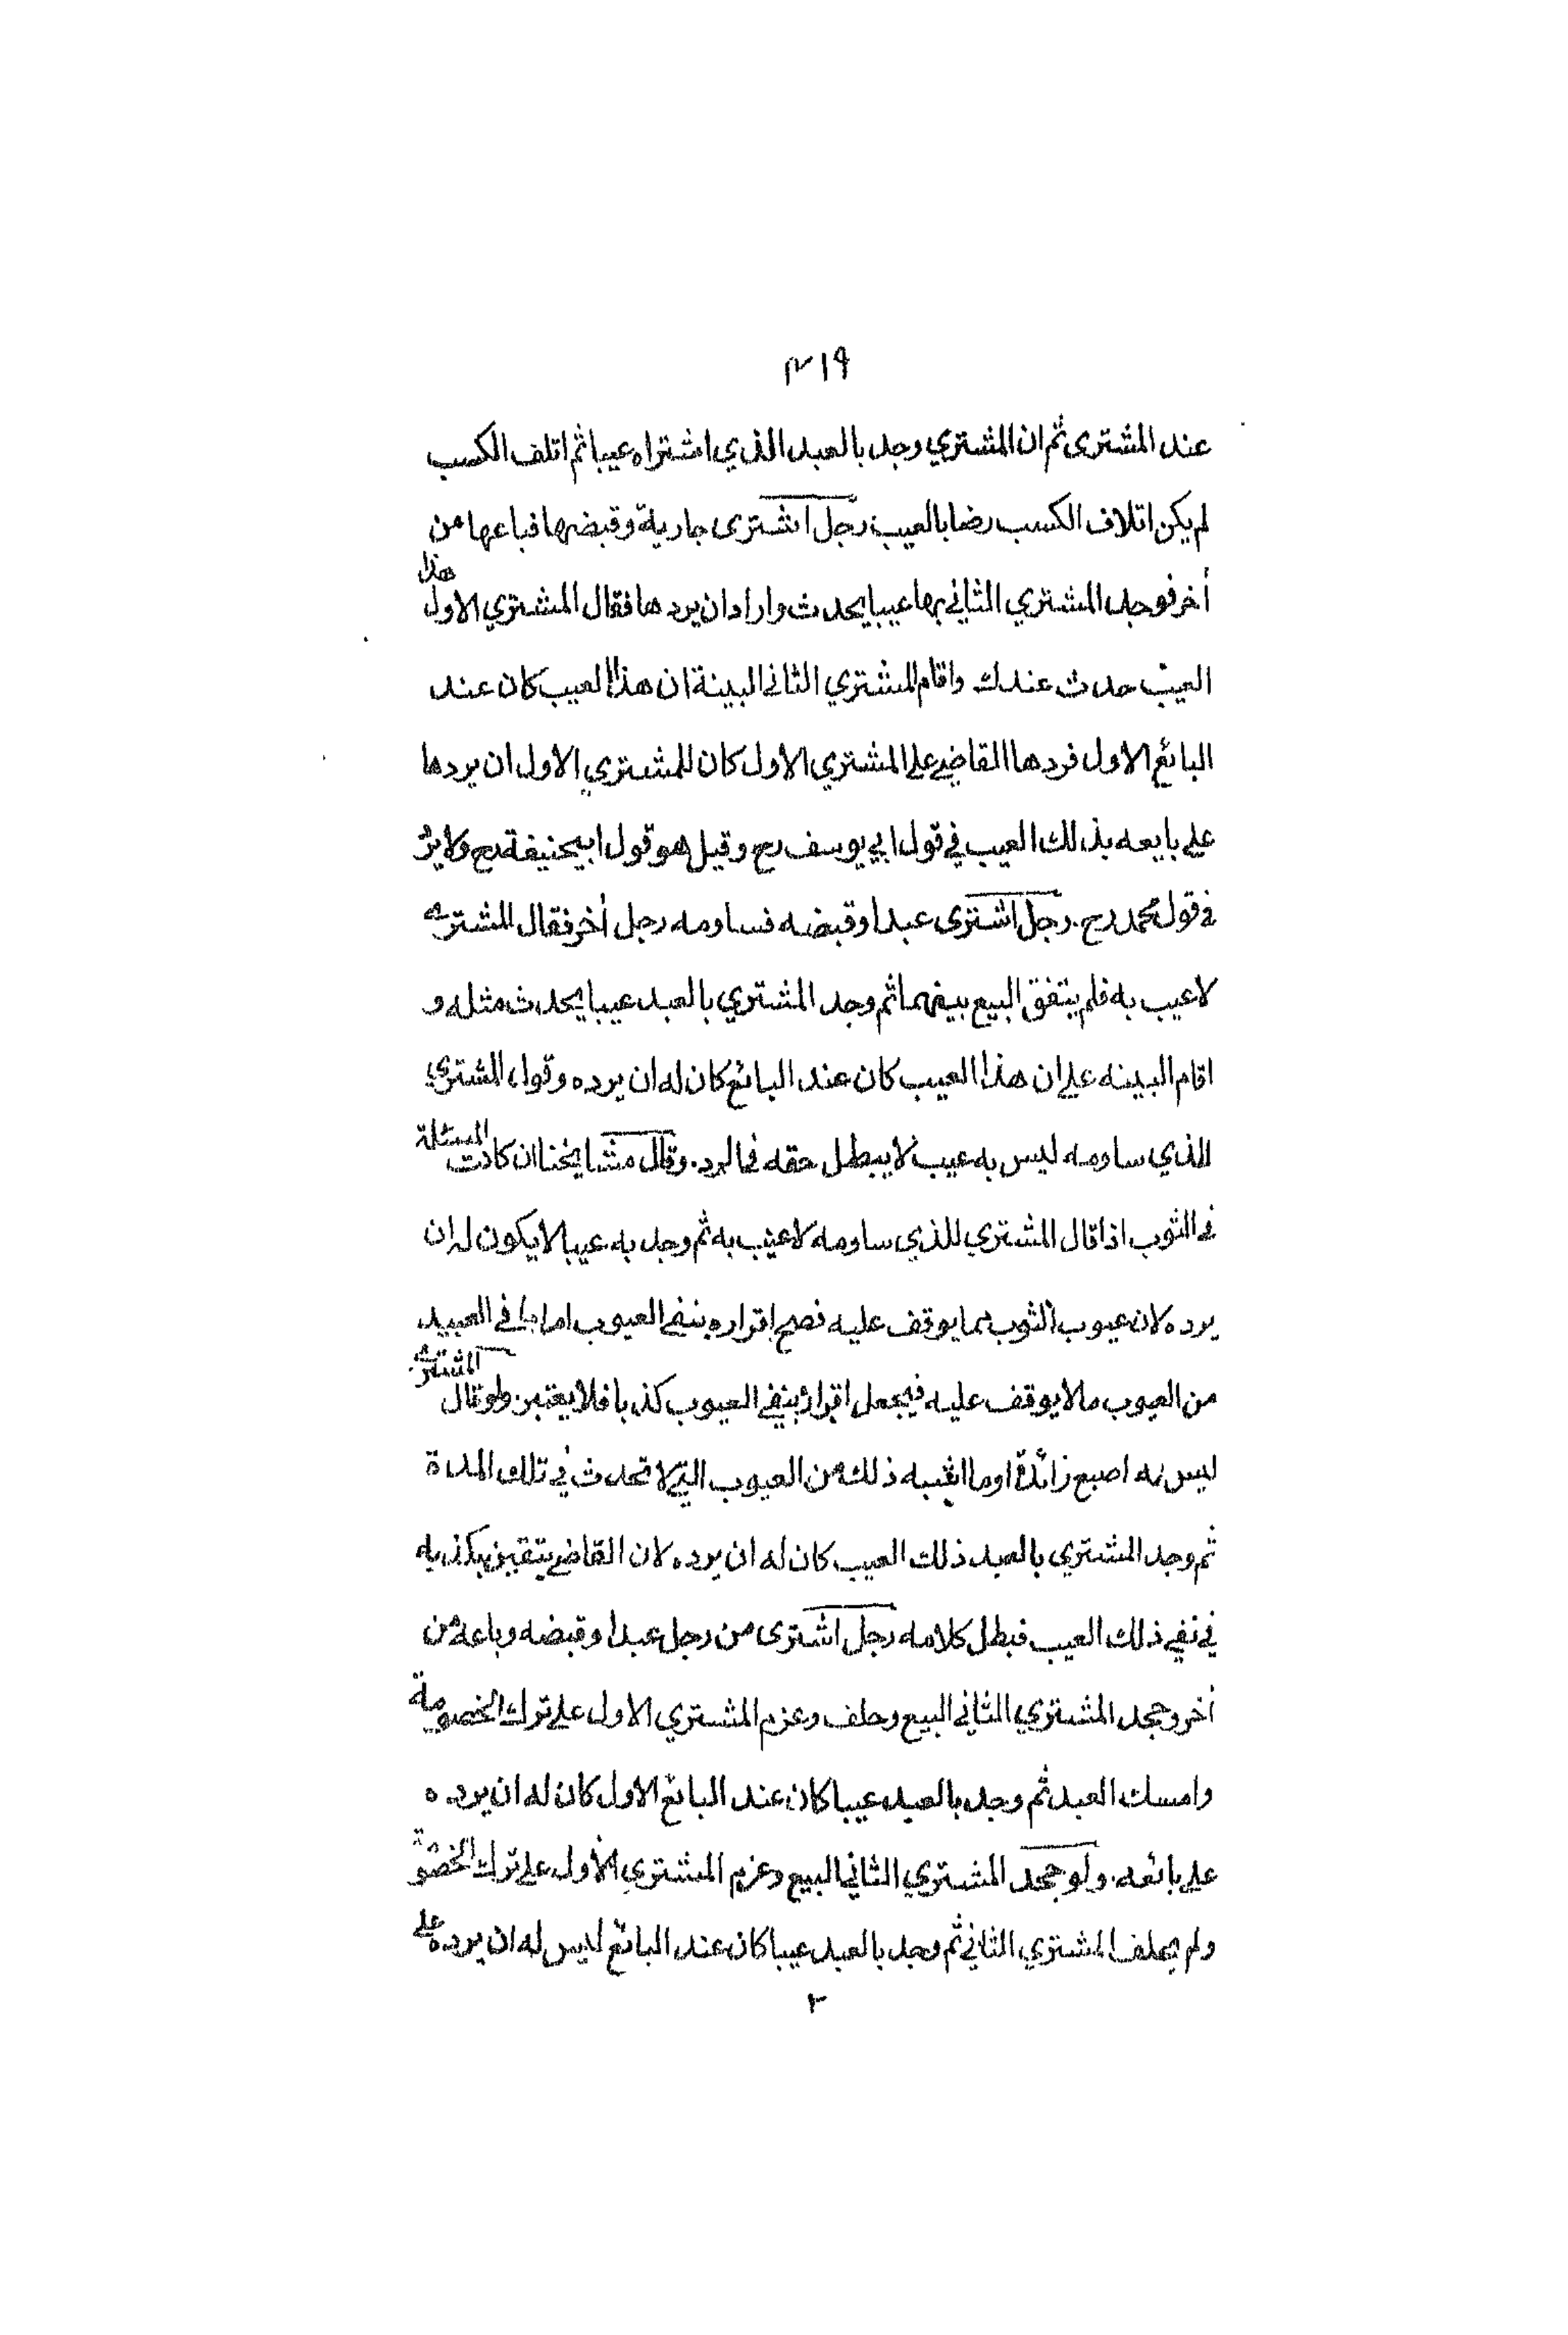 ٣١٩
عند المشترى ثم ان المشتري وجد بالعبد الذي اشتراه عيبا ثم اتلف الكسب
لم يكن اتلاف الكسب رضا بالعيب رجل اشترى جارية وقبضها فباعها من
أخر فوجد المشتري الثاني بها عيبا يحدث واراد ان يردها فقال المشتري الاول هذا
العيب حدث عندك واقام المشتري الثاني البينة ان هذا العيب كان عند
البائع الاول فردها القاضي على المشتري الاول كان للمشتري الاول ان يردها
على بايعه بذلك العيب في قول ابي يوسف رح وقيل هو قول ابيحنيفة رح ولا يرد
في قول محمد رح . رجل اشترى عبدا وقبضه فساومه رجل أخر فقال المشتري
لا عيب به فلم يتفق البيع بينهما ثم وجد المشتري بالعبد عيبا يحدث مثله و
اقام البينه على ان هذا العيب كان عند البائع كان له ان يرده وقول المشتري
للذي ساومه ليس به عيب لا يبطل حقه في الرد . وقال مشايخنا ان كانت المسئلة
في الثوب اذا قال المشتري للذي ساومه لا عيب به ثم وجد به عيبا لا يكون له ان
يرده لان عيوب الثوب مما يوقف عليه فصح اقراره بنفي العيوب اما في العبيد
من العيوب ما لا يوقف عليه فيجعل اقراره بنفي العيوب كذبا فلا يعتبر . ولو قال المشتري
ليس به اصبع زائدة او ما اشبه ذلك من العيوب التي لا تحدث في تلك المدة
ثم وجد المشتري بالعبد ذلك العيب كان له ان يرده لان القاضي يتقين بكذبه
في نفي ذلك العيب فبطل كلامه رجل اشترى من رجل عبدا وقبضه وباعه من
أخر وجحد المشتري الثاني البيع وحلف وعزم المشتري الاول على ترك الخصومة
وامسك العبد ثم وجد بالعبد عيبا كان عند البائع الاول كان له ان يرده
على بائعه . ولو جحد المشتري الثاني البيع وعزم المشتري الاول على ترك الخصومة
ولم يحلف المشتري الثاني ثم وجد بالعبد عيبا كان عند البائع ليس له ان يرده على
٢